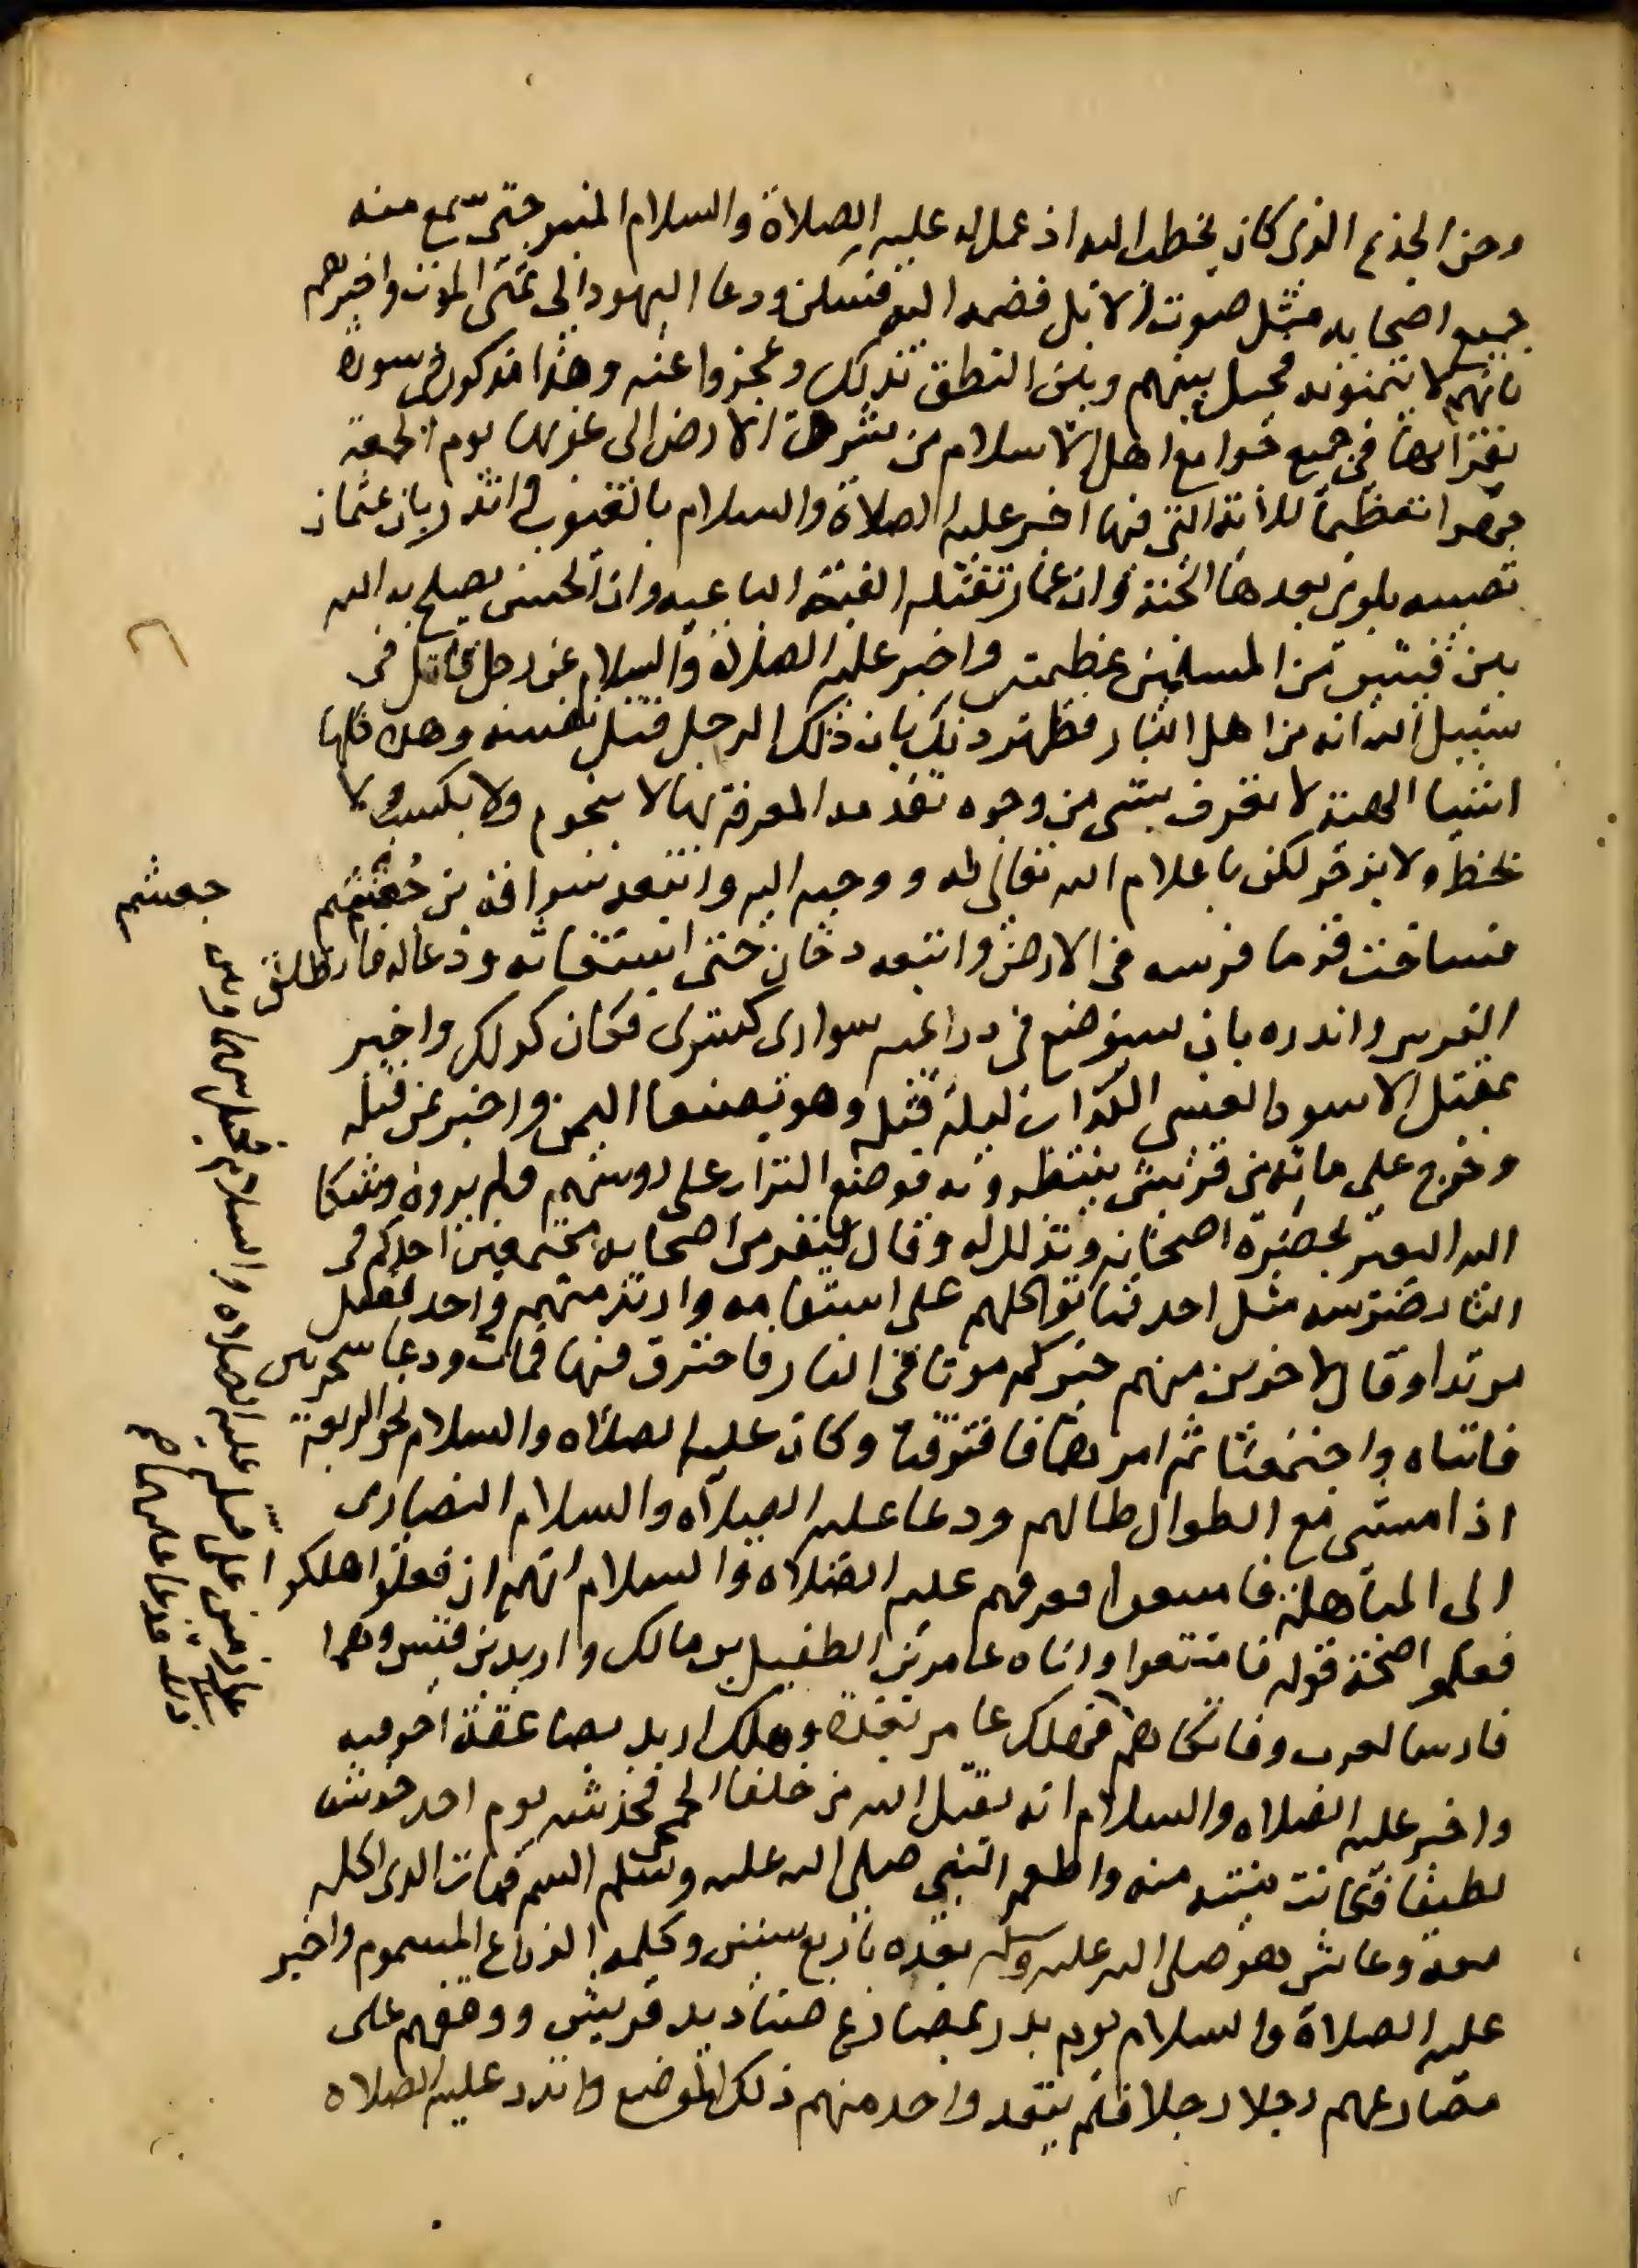 وحن الجذع الذي كان يخطب اليه اذ عمل له عليه الصلاة والسلام المنبر حتى سمع منه
جميع اصحابه مثل صوت الابل فضمه اليه فسكن ودعا اليهود الى تمنى الموت واخبرهم
بانهم لا يتمنونه فحيل بينهم وبين النطق بذلك وعجزوا عنه وهذا مذكور في سورة
يقرا بها في جميع جوامع اهل الاسلام من شرق الارض الى غربها يوم الجمعة
جهرا تعظيما للاية التي فيها اخبر عليه الصلاة والسلام بالغيوب وانذر بان عثمان
تصيبه بلوى بعدها الجنة وان عمار تقتله الفئة الباغيه وان الحسن يصلح به الله
بين فئتين من المسلمين عظيمتين واخبر عليه الصلاة والسلام عن رجل قاتل في
سبيل الله انه من اهل النار فظهر ذلك بان ذلك الرجل قتل نفسه وهذه كلها
اشيا البتة لا تعرف بشى من وجوه تقدمه المعرفة بها لا بنجوم ولا بكتف ولا
بخط ولا بزجر لكن باعلام الله تعالى له ووحيه اليه واتبعه سراقة بن جعشم
فساخت قدما فرسه في الارض واتبعه دخان حتى استغاثه ودعا له فانطلق
الفرس وانذره بان سيوضع في ذراعيه سواري كسرى فكان كذلك واخبر
بمقتل الاسود العنسى الكذاب ليلة قتله وهو بصنعا اليمن واخبر بمن قتله
وخرج على مائة من قريش ينتظرونه فوضع التراب على روسهم ولم يروه وشكا
اليه البعير بحضرة اصحابه وتذلل له وقال لنفر من اصحابه مجتمعين احدكم في
النار ضرسه مثل احد فماتوا كلهم على استقامه وارتد منهم واحد فقتل
مرتدا وقال لاخرين منهم اخركم موتا في النار فاحترق فيها فمات ودعا شجرتين
فاتتاه واجتمعتا ثم امرهما فافترقتا وكان عليه الصلاه والسلام نحو الربعة
اذا مشى مع الطوال طالهم ودعا عليه الصلاه والسلام النصارى
الى المباهلة فامتنعوا فعرفهم عليه الصلاه والسلام انهم ان فعلوا هلكوا
فعلموا صحة قوله فامتنعوا واتاه عامر بن الطفيل بن مالك واربد بن قيس وهما
فارسا العرب وفاتكاهم فهلك عامر بغدة وهلك اربد بصاعقة احرقته
واخبر عليه الصلاه والسلام انه يقتل ابي بن خلف الجمحي فخدشه يوم احد خدشا
لطيفا فكانت منيته منه واطعم النبي صلى الله عليه وسلم السم فمات الذي اكله
معه وعاش هو صلى الله عليه وسلم بعده باربع سنين وكلمه الذراع المسموم واخبر
عليه الصلاة والسلام يوم بدر بمصارع صناديد قريش ووقفهم على
مصارعهم رجلا رجلا فلم يتعد واحد منهم ذلك الموضع وانذر عليه الصلاه
جعشم